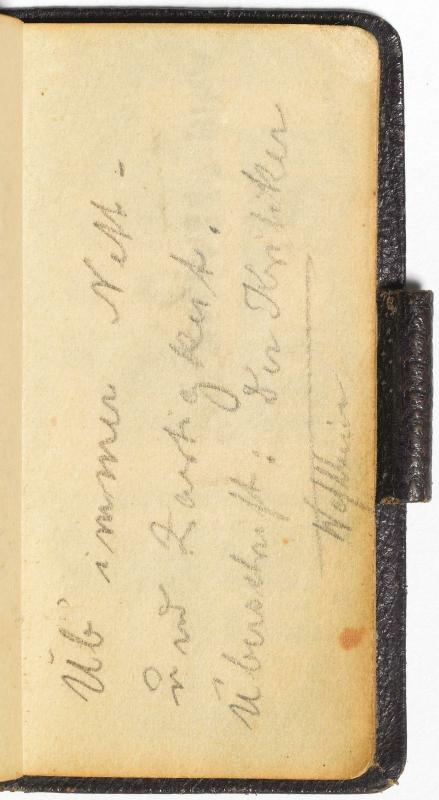 Üb' immer Nett-
und Zartigkeit.
Überschrift: Der Kritiker
Westheim